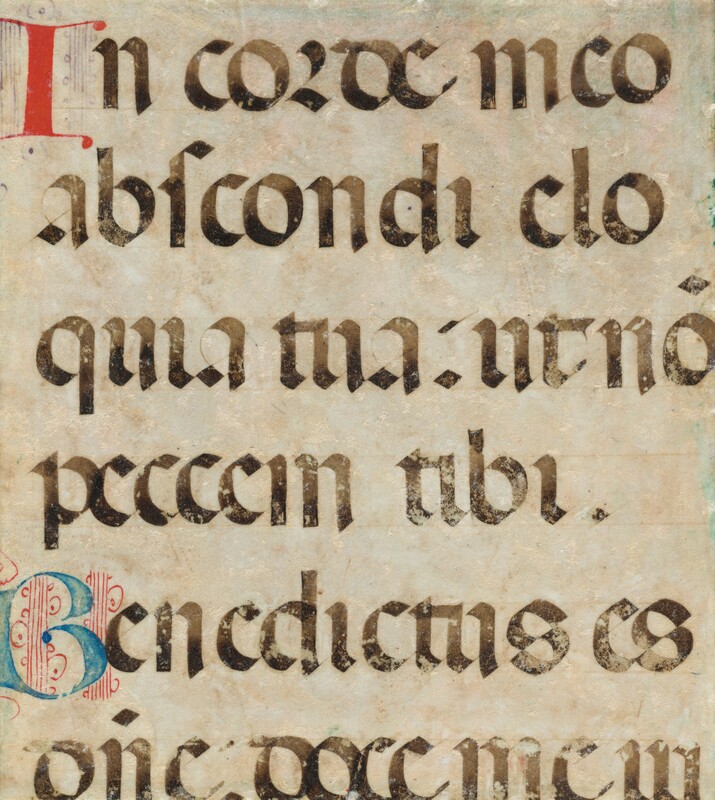 In corde meo
abscondi elo
quia tua: ut nō
peccem tibi.
Benedictus es
dñe doce me in